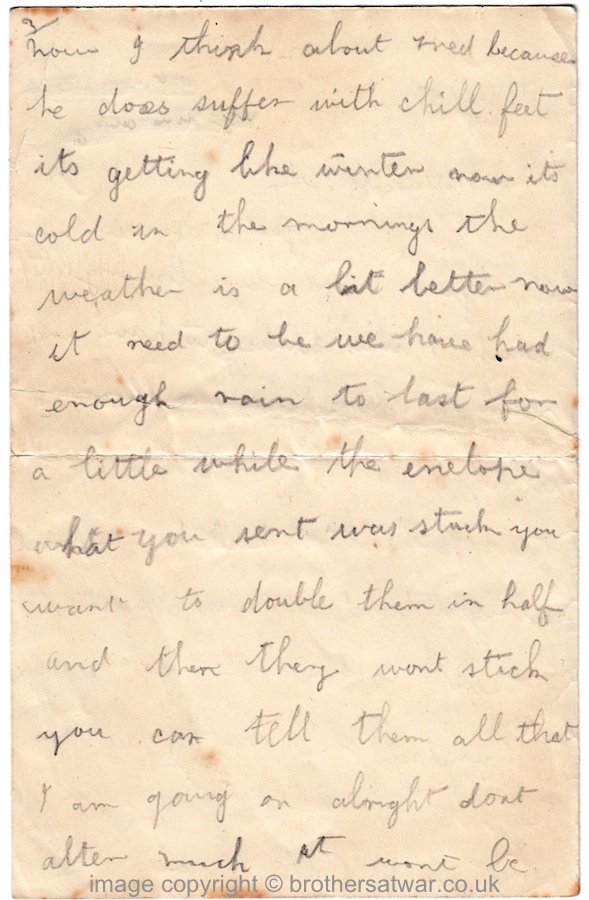 3
how I think about Fred because
he does suffer with chill feet
its getting like winter now it's
cold in the mornings the
weather is a bit better now
it need to be we have had
enough rain to last for
a little while the enelope
what you sent was stuck you
want to double them in half
and then they wont stick
you can tell them all that
I am going on alright dont
alter much it wont be
image copyright © brothersatwar.co.uk